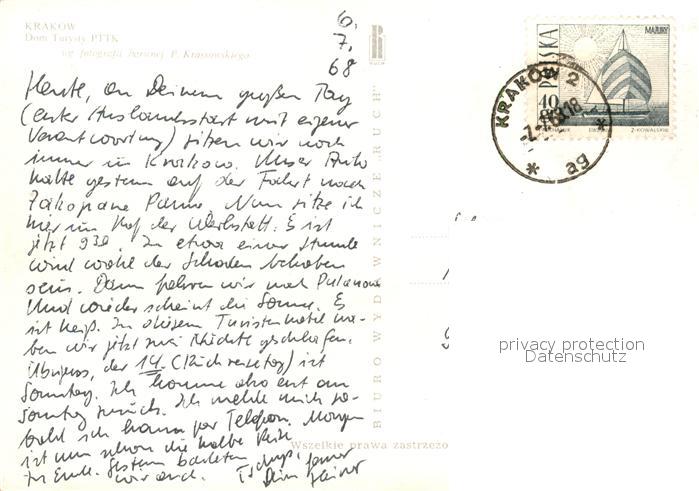 KRAKÓW
Dom Turysty PTTK
wg fotografii barwnej P. Krassowskiego
6.
7.
68
Heute, an Deinem großen Tag
(erster Auslandsstart mit eigener
Verantwortung) sitzen wir noch
immer in Krakow. Unser Auto
hatte gestern auf der Fahrt nach
Zakopane Panne. Nun sitze ich
hier im Hof der Werkstatt. Es ist
jetzt 930. In etwa einer Stunde
wird wohl der Schaden behoben
sein. Dann fahren wir nach
Und wieder scheint die Sonne. Es
ist heiß. In diesem Touristenhotel ha-
ben wir jetzt zwei Nächte geschlafen.
Übrigens, der 14. (Rückreisetag) ist
Sonntag. Ich komme also erst am
Sonntag zurück. Ich melde mich so-
bald ich kann per Telefon. Morgen
ist nun schon die halbe Reise
zu Ende. Gestern badeten
wir auch. Tschüß,
Dein
BIURO WYDAWNICZE „RUCH"
Wszelkie prawa zastrzeżo
POLSKA
MAZURY
40
Z. KOWALSKI
KRAKÓW 2
18
* ag *
privacy protection
Datenschutz